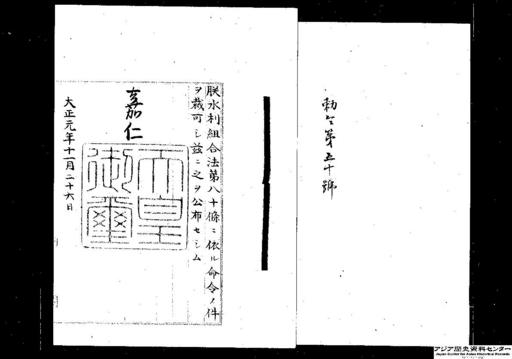 勅令第五十號
朕水利組合法第八十條ニ依ル命令ノ件
ヲ裁可シ茲ニ之ヲ公布セシム
嘉仁
天皇
御璽
大正元年十一月二十六日
アジア歴史資料センター
Japan Center for Asian Historical Records